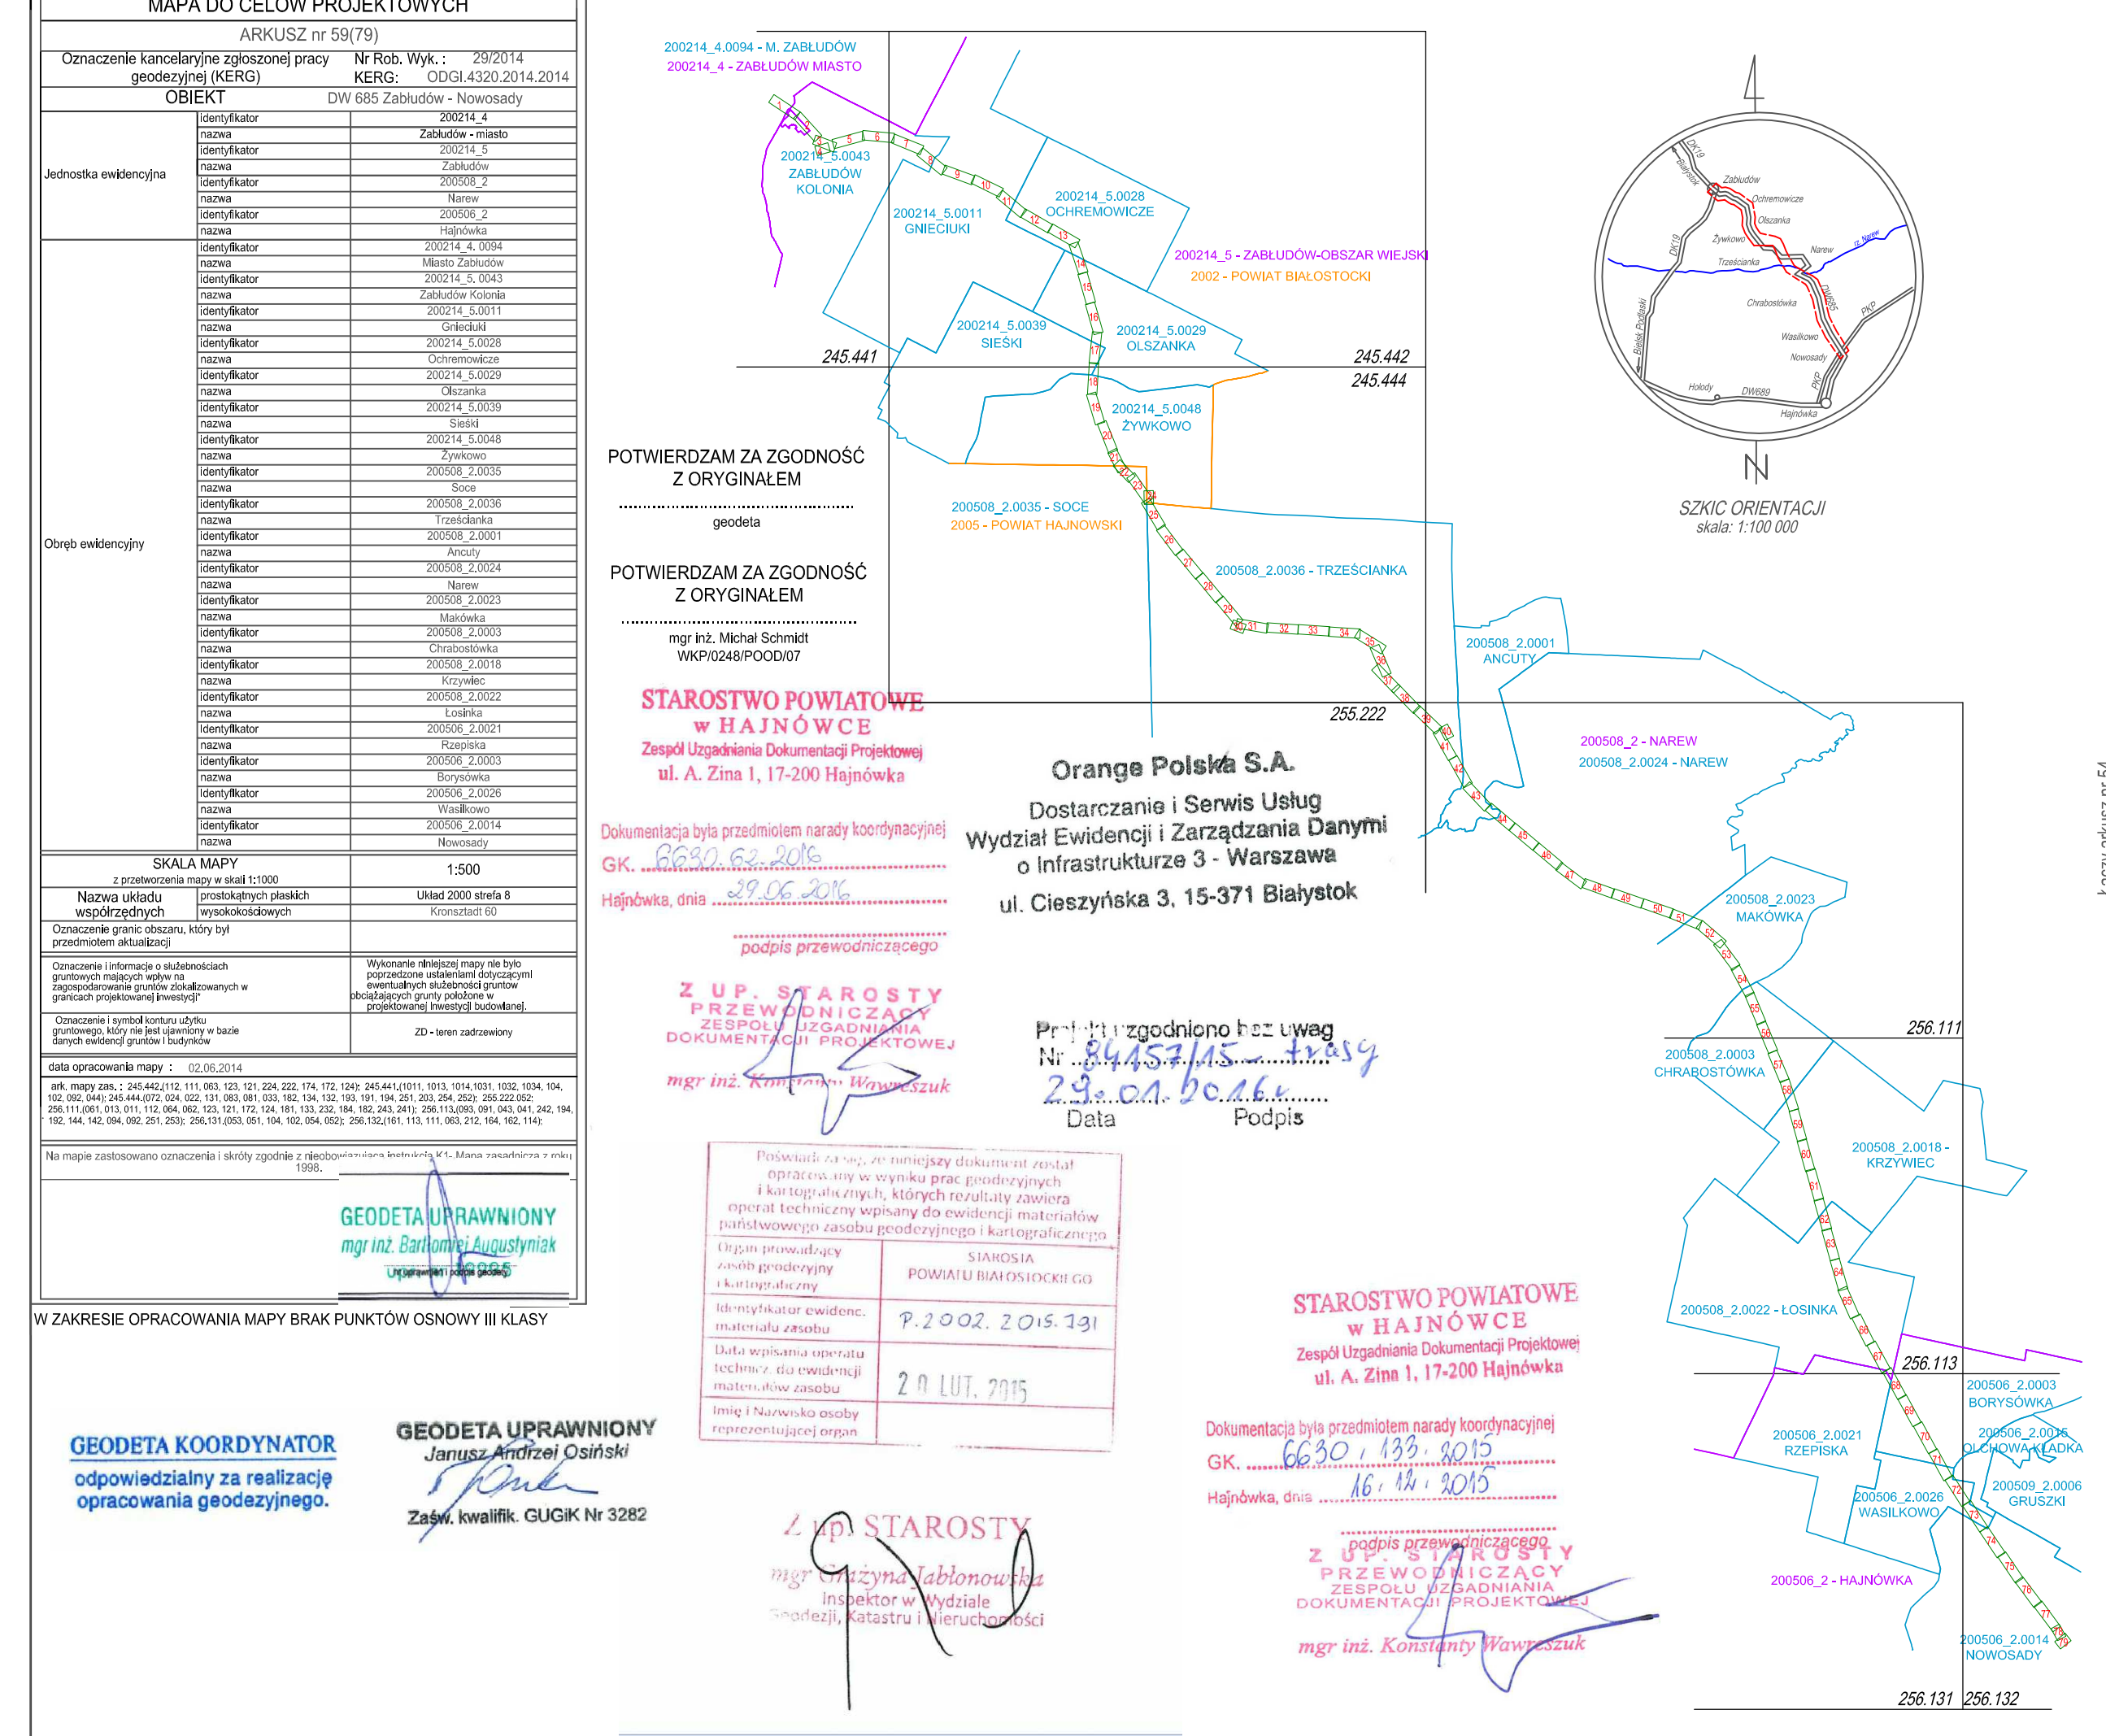 MAPA DO CELÓW PROJEKTOWYCH
ARKUSZ nr 59(79)
Oznaczenie kancelaryjne zgłoszonej pracy geodezyjnej (KERG)
Nr Rob. Wyk. : 29/2014
KERG: ODGI.4320.2014.2014
OBIEKT DW 685 Zabłudów - Nowosady
Jednostka ewidencyjna
identyfikator 200214_4
nazwa Zabłudów - miasto
identyfikator 200214_5
nazwa Zabłudów
identyfikator 200508_2
nazwa Narew
identyfikator 200506_2
nazwa Hajnówka
Obręb ewidencyjny
identyfikator 200214_4. 0094
nazwa Miasto Zabłudów
identyfikator 200214_5. 0043
nazwa Zabłudów Kolonia
identyfikator 200214_5.0011
nazwa Gnieciuki
identyfikator 200214_5.0028
nazwa Ochremowicze
identyfikator 200214_5.0029
nazwa Olszanka
identyfikator 200214_5.0039
nazwa Sieśki
identyfikator 200214_5.0048
nazwa Żywkowo
identyfikator 200508_2.0035
nazwa Soce
identyfikator 200508_2.0036
nazwa Trześcianka
identyfikator 200508_2.0001
nazwa Ancuty
identyfikator 200508_2.0024
nazwa Narew
identyfikator 200508_2.0023
nazwa Makówka
identyfikator 200508_2.0003
nazwa Chrabostówka
identyfikator 200508_2.0018
nazwa Krzywiec
identyfikator 200508_2.0022
nazwa Łosinka
identyfikator 200506_2.0021
nazwa Rzepiska
identyfikator 200506_2.0003
nazwa Borysówka
identyfikator 200506_2.0026
nazwa Wasilkowo
identyfikator 200506_2.0014
nazwa Nowosady
SKALA MAPY
z przetworzenia mapy w skali 1:1000
1:500
Nazwa układu współrzędnych
prostokątnych płaskich Układ 2000 strefa 8
wysokokościowych Kronsztadt 60
Oznaczenie granic obszaru, który był
przedmiotem aktualizacji
Oznaczenie i informacje o służebnościach
gruntowych mających wpływ na
zagospodarowanie gruntów zlokalizowanych w
granicach projektowanej inwestycji*
Wykonanie niniejszej mapy nie było
poprzedzone ustaleniami dotyczącymi
ewentualnych służebności gruntów
obciążających grunty położone w
projektowanej inwestycji budowlanej.
Oznaczenie i symbol konturu użytku
gruntowego, który nie jest ujawniony w bazie
danych ewidencji gruntów i budynków
ZD - teren zadrzewiony
data opracowania mapy : 02.06.2014
ark. mapy zas. : 245,442,(112, 111, 063, 123, 121, 224, 222, 174, 172, 124); 245.441,(1011, 1013, 1014,1031, 1032, 1034, 104,
102, 092, 044); 245.444.(072, 024, 022, 131, 083, 081, 033, 182, 134, 132, 193, 191, 194, 251, 203, 254, 252); 255.222.052;
256,111,(061, 013, 011, 112, 064, 062, 123, 121, 172, 124, 181, 133, 232, 184, 182, 243, 241); 256,113,(093, 091, 043, 041, 242, 194,
192, 144, 142, 094, 092, 251, 253); 256,131,(053, 051, 104, 102, 054, 052); 256,132,(161, 113, 111, 063, 212, 164, 162, 114);
Na mapie zastosowano oznaczenia i skróty zgodnie z nieobowiązującą instrukcją K1- Mapa zasadnicza z roku
1998.
GEODETA UPRAWNIONY
mgr inż. Bartłomiej Augustyniak
nr uprawnień i podpis geodety
W ZAKRESIE OPRACOWANIA MAPY BRAK PUNKTÓW OSNOWY III KLASY
GEODETA KOORDYNATOR
odpowiedzialny za realizację
opracowania geodezyjnego.
GEODETA UPRAWNIONY
Janusz Andrzej Osiński
Zaśw. kwalifik. GUGiK Nr 3282
POTWIERDZAM ZA ZGODNOŚĆ
Z ORYGINAŁEM
geodeta
POTWIERDZAM ZA ZGODNOŚĆ
Z ORYGINAŁEM
mgr inż. Michał Schmidt
WKP/0248/POOD/07
STAROSTWO POWIATOWE
w HAJNÓWCE
Zespół Uzgadniania Dokumentacji Projektowej
ul. A. Zina 1, 17-200 Hajnówka
Dokumentacja była przedmiotem narady koordynacyjnej
GK. 6630.62.2016
Hajnówka, dnia 29.06.2016
podpis przewodniczącego
Z UP. STAROSTY
PRZEWODNICZĄCY
ZESPOŁU UZGADNIANIA
DOKUMENTACJI PROJEKTOWEJ
mgr inż. Konstanty Wawreszuk
Orange Polska S.A.
Dostarczanie i Serwis Usług
Wydział Ewidencji i Zarządzania Danymi
o Infrastrukturze 3 - Warszawa
ul. Cieszyńska 3, 15-371 Białystok
Projekt uzgodniono bez uwag
Nr 84157/15 - trasy
29.01.2016r
Data Podpis
Poświadcza się, że niniejszy dokument został
opracowany w wyniku prac geodezyjnych
i kartograficznych, których rezultaty zawiera
operat techniczny wpisany do ewidencji materiałów
państwowego zasobu geodezyjnego i kartograficznego
Organ prowadzący
zasób geodezyjny
i kartograficzny
STAROSTA
POWIATU BIAŁOSTOCKIEGO
Identyfikator ewidenc.
materiału zasobu
P.2002.2015.791
Data wpisania operatu
technicz. do ewidencji
materiałów zasobu
20 LUT. 2015
Imię i Nazwisko osoby
reprezentującej organ
Z up. STAROSTY
mgr Grażyna Jabłonowska
Inspektor w Wydziale
Geodezji, Katastru i Nieruchomości
STAROSTWO POWIATOWE
w HAJNÓWCE
Zespół Uzgadniania Dokumentacji Projektowej
ul. A. Zina 1, 17-200 Hajnówka
Dokumentacja była przedmiotem narady koordynacyjnej
GK. 6630.133.2015
Hajnówka, dnia 16.12.2015
podpis przewodniczącego
Z UP. STAROSTY
PRZEWODNICZĄCY
ZESPOŁU UZGADNIANIA
DOKUMENTACJI PROJEKTOWEJ
mgr inż. Konstanty Wawreszuk
200214_4.0094 - M. ZABŁUDÓW
200214_4 - ZABŁUDÓW MIASTO
200214_5.0043
ZABŁUDÓW
KOLONIA
200214_5.0011
GNIECIUKI
200214_5.0028
OCHREMOWICZE
200214_5 - ZABŁUDÓW-OBSZAR WIEJSKI
2002 - POWIAT BIAŁOSTOCKI
200214_5.0039
SIEŚKI
200214_5.0029
OLSZANKA
245.441
245.442
245.444
200214_5.0048
ŻYWKOWO
200508_2.0035 - SOCE
2005 - POWIAT HAJNOWSKI
200508_2.0036 - TRZEŚCIANKA
200508_2.0001
ANCUTY
255.222
200508_2 - NAREW
200508_2.0024 - NAREW
200508_2.0023
MAKÓWKA
256.111
200508_2.0003
CHRABOSTÓWKA
200508_2.0018 -
KRZYWIEC
200508_2.0022 - ŁOSINKA
256.113
200506_2.0003
BORYSÓWKA
200506_2.0021
RZEPISKA
200506_2.0015
OLCHOWA KŁADKA
200509_2.0006
GRUSZKI
200506_2.0026
WASILKOWO
200506_2 - HAJNÓWKA
200506_2.0014
NOWOSADY
256.131
256.132
DK19
Białystok
Zabłudów
Ochremowicze
Olszanka
Żywkowo
Narew
rz. Narew
Trześcianka
DK19
Chrabostówka
DW685
PKP
Wasilkowo
Nowosady
Bielsk Podlaski
PKP
Hołody
DW689
Hajnówka
N
SZKIC ORIENTACJI
skala: 1:100 000